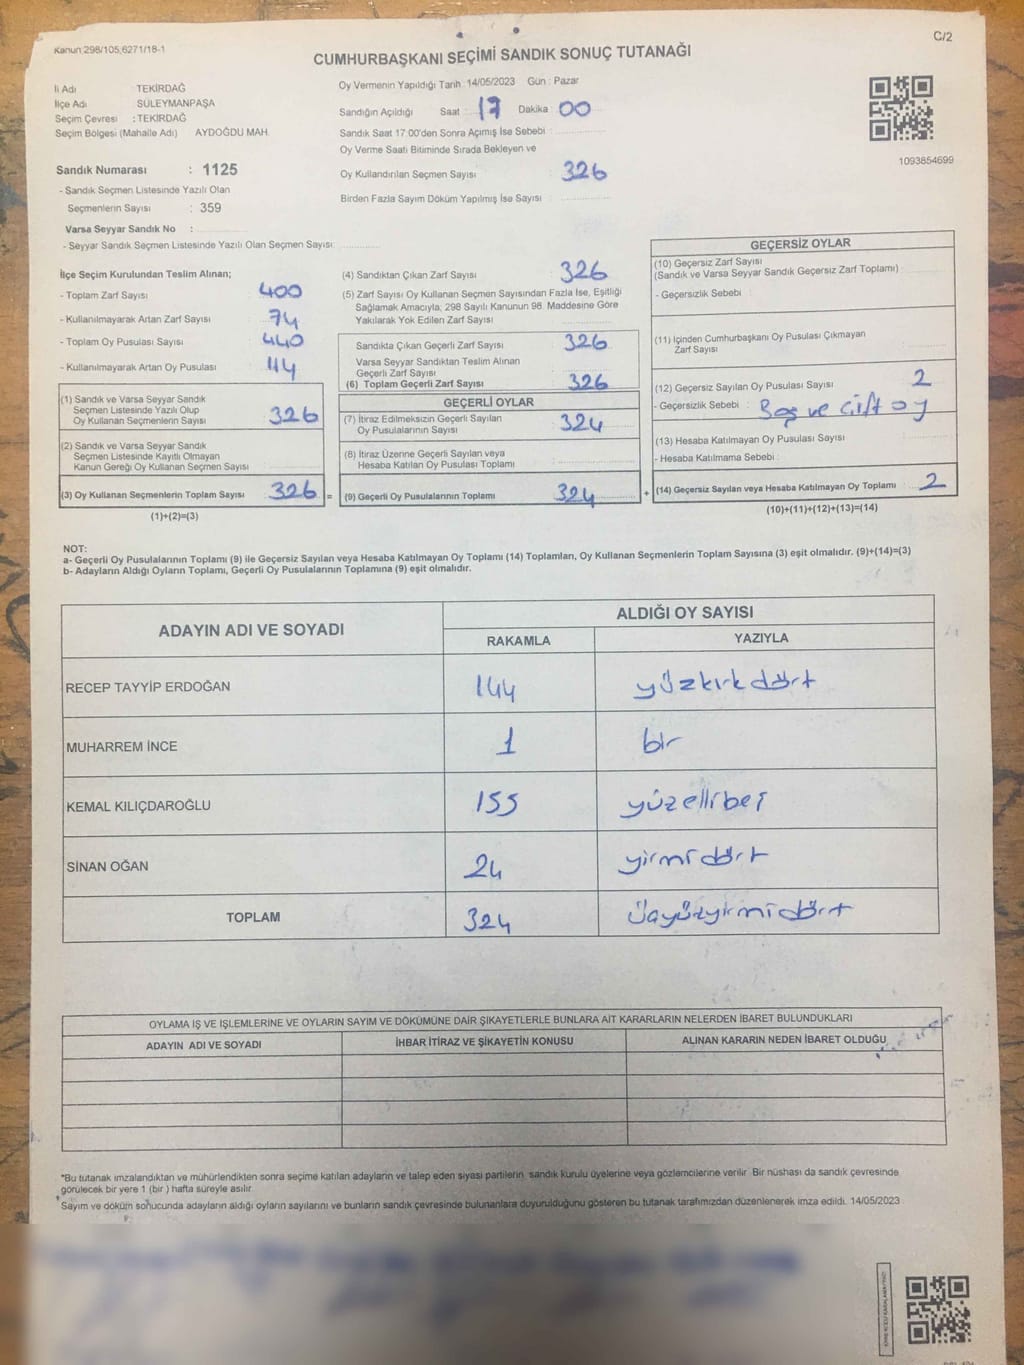 Kanun:298/105,6271/18-1
C/2
CUMHURBAŞKANI SEÇİMİ SANDIK SONUÇ TUTANAĞI
İl Adı TEKİRDAĞ
İlçe Adı SÜLEYMANPAŞA
Seçim Çevresi : TEKİRDAĞ
Seçim Bölgesi (Mahalle Adı) AYDOĞDU MAH.
Sandık Numarası : 1125
- Sandık Seçmen Listesinde Yazılı Olan
Seçmenlerin Sayısı : 359
Varsa Seyyar Sandık No :
- Seyyar Sandık Seçmen Listesinde Yazılı Olan Seçmen Sayısı:
Oy Vermenin Yapıldığı Tarih :14/05/2023 Gün : Pazar
Sandığın Açıldığı Saat : 17 Dakika : 00
Sandık Saat 17:00'den Sonra Açımış İse Sebebi :
Oy Verme Saati Bitiminde Sırada Bekleyen ve
Oy Kullandırılan Seçmen Sayısı : 326
Birden Fazla Sayım Döküm Yapılmış İse Sayısı :
1093854699
İlçe Seçim Kurulundan Teslim Alınan;
- Toplam Zarf Sayısı : 400
- Kullanılmayarak Artan Zarf Sayısı : 74
- Toplam Oy Pusulası Sayısı : 440
- Kullanılmayarak Artan Oy Pusulası : 114
(1) Sandık ve Varsa Seyyar Sandık
Seçmen Listesinde Yazılı Olup
Oy Kullanan Seçmenlerin Sayısı : 326
(2) Sandık ve Varsa Seyyar Sandık
Seçmen Listesinde Kayıtlı Olmayan
Kanun Gereği Oy Kullanan Seçmen Sayısı
(3) Oy Kullanan Seçmenlerin Toplam Sayısı : 326 =
(1)+(2)=(3)
(4) Sandıktan Çıkan Zarf Sayısı : 326
(5) Zarf Sayısı Oy Kullanan Seçmen Sayısından Fazla İse, Eşitliği
Sağlamak Amacıyla, 298 Sayılı Kanunun 98. Maddesine Göre
Yakılarak Yok Edilen Zarf Sayısı :
Sandıkta Çıkan Geçerli Zarf Sayısı : 326
Varsa Seyyar Sandıktan Teslim Alınan
Geçerli Zarf Sayısı
(6) Toplam Geçerli Zarf Sayısı : 326
GEÇERLİ OYLAR
(7) İtiraz Edilmeksizin Geçerli Sayılan
Oy Pusulalarının Sayısı : 324
(8) İtiraz Üzerine Geçerli Sayılan veya
Hesaba Katılan Oy Pusulası Toplamı :
(9) Geçerli Oy Pusulalarının Toplamı : 324 +
GEÇERSİZ OYLAR
(10) Geçersiz Zarf Sayısı
(Sandık ve Varsa Seyyar Sandık Geçersiz Zarf Toplamı) :
- Geçersizlik Sebebi :
(11) İçinden Cumhurbaşkanı Oy Pusulası Çıkmayan
Zarf Sayısı :
(12) Geçersiz Sayılan Oy Pusulası Sayısı : 2
- Geçersizlik Sebebi : Boş ve Çift oy
(13) Hesaba Katılmayan Oy Pusulası Sayısı :
- Hesaba Katılmama Sebebi :
(14) Geçersiz Sayılan veya Hesaba Katılmayan Oy Toplamı : 2
(10)+(11)+(12)+(13)=(14)
NOT:
a- Geçerli Oy Pusulalarının Toplamı (9) ile Geçersiz Sayılan veya Hesaba Katılmayan Oy Toplamı (14) Toplamları, Oy Kullanan Seçmenlerin Toplam Sayısına (3) eşit olmalıdır. (9)+(14)=(3)
b- Adayların Aldığı Oyların Toplamı, Geçerli Oy Pusulalarının Toplamına (9) eşit olmalıdır.
ADAYIN ADI VE SOYADI ALDIĞI OY SAYISI
RAKAMLA YAZIYLA
RECEP TAYYİP ERDOĞAN 144 yüzkırkdört
MUHARREM İNCE 1 bir
KEMAL KILIÇDAROĞLU 155 yüzellibeş
SİNAN OĞAN 24 yirmidört
TOPLAM 324 üçyüzyirmidört
OYLAMA İŞ VE İŞLEMLERİNE VE OYLARIN SAYIM VE DÖKÜMÜNE DAİR ŞİKAYETLERLE BUNLARA AİT KARARLARIN NELERDEN İBARET BULUNDUKLARI
ADAYIN ADI VE SOYADI İHBAR İTİRAZ VE ŞİKAYETİN KONUSU ALINAN KARARIN NEDEN İBARET OLDUĞU
*Bu tutanak imzalandıktan ve mühürlendikten sonra seçime katılan adayların ve talep eden siyasi partilerin sandık kurulu üyelerine veya gözlemcilerine verilir. Bir nüshası da sandık çevresinde
görülecek bir yere 1 (bir ) hafta süreyle asılır.
*Sayım ve döküm sonucunda adayların aldığı oyların sayılarını ve bunların sandık çevresinde bulunanlara duyurulduğunu gösteren bu tutanak tarafımızdan düzenlenerek imza edildi. 14/05/2023